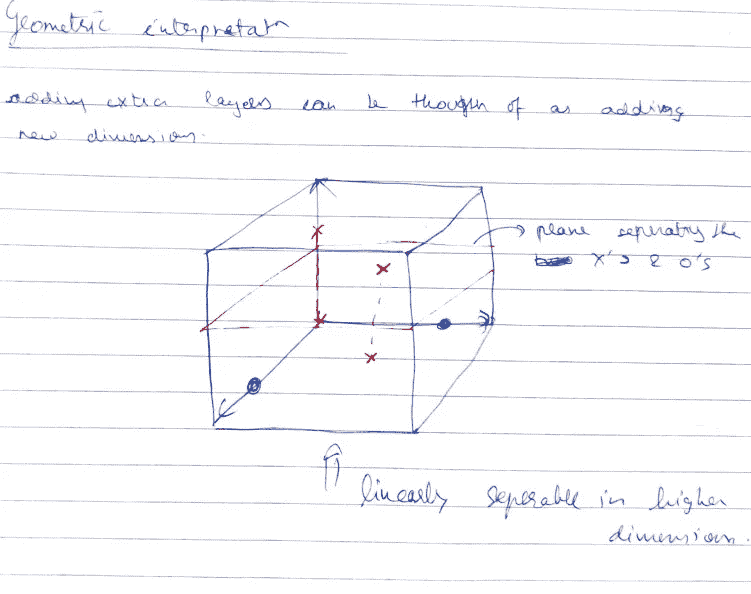 Geometric interpretatn
adding extra layers can be though of as adding
new dimensions.
plane seperatng the
X's & O's
linearly seperable in higher
dimension.